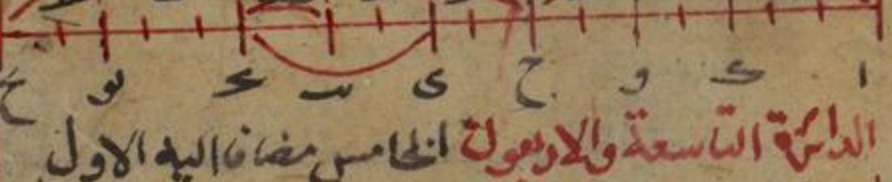 ا د و ح ى يب يد يو يح
الدائرة التاسعة والاربعون الخامس مضافا اليه الاول